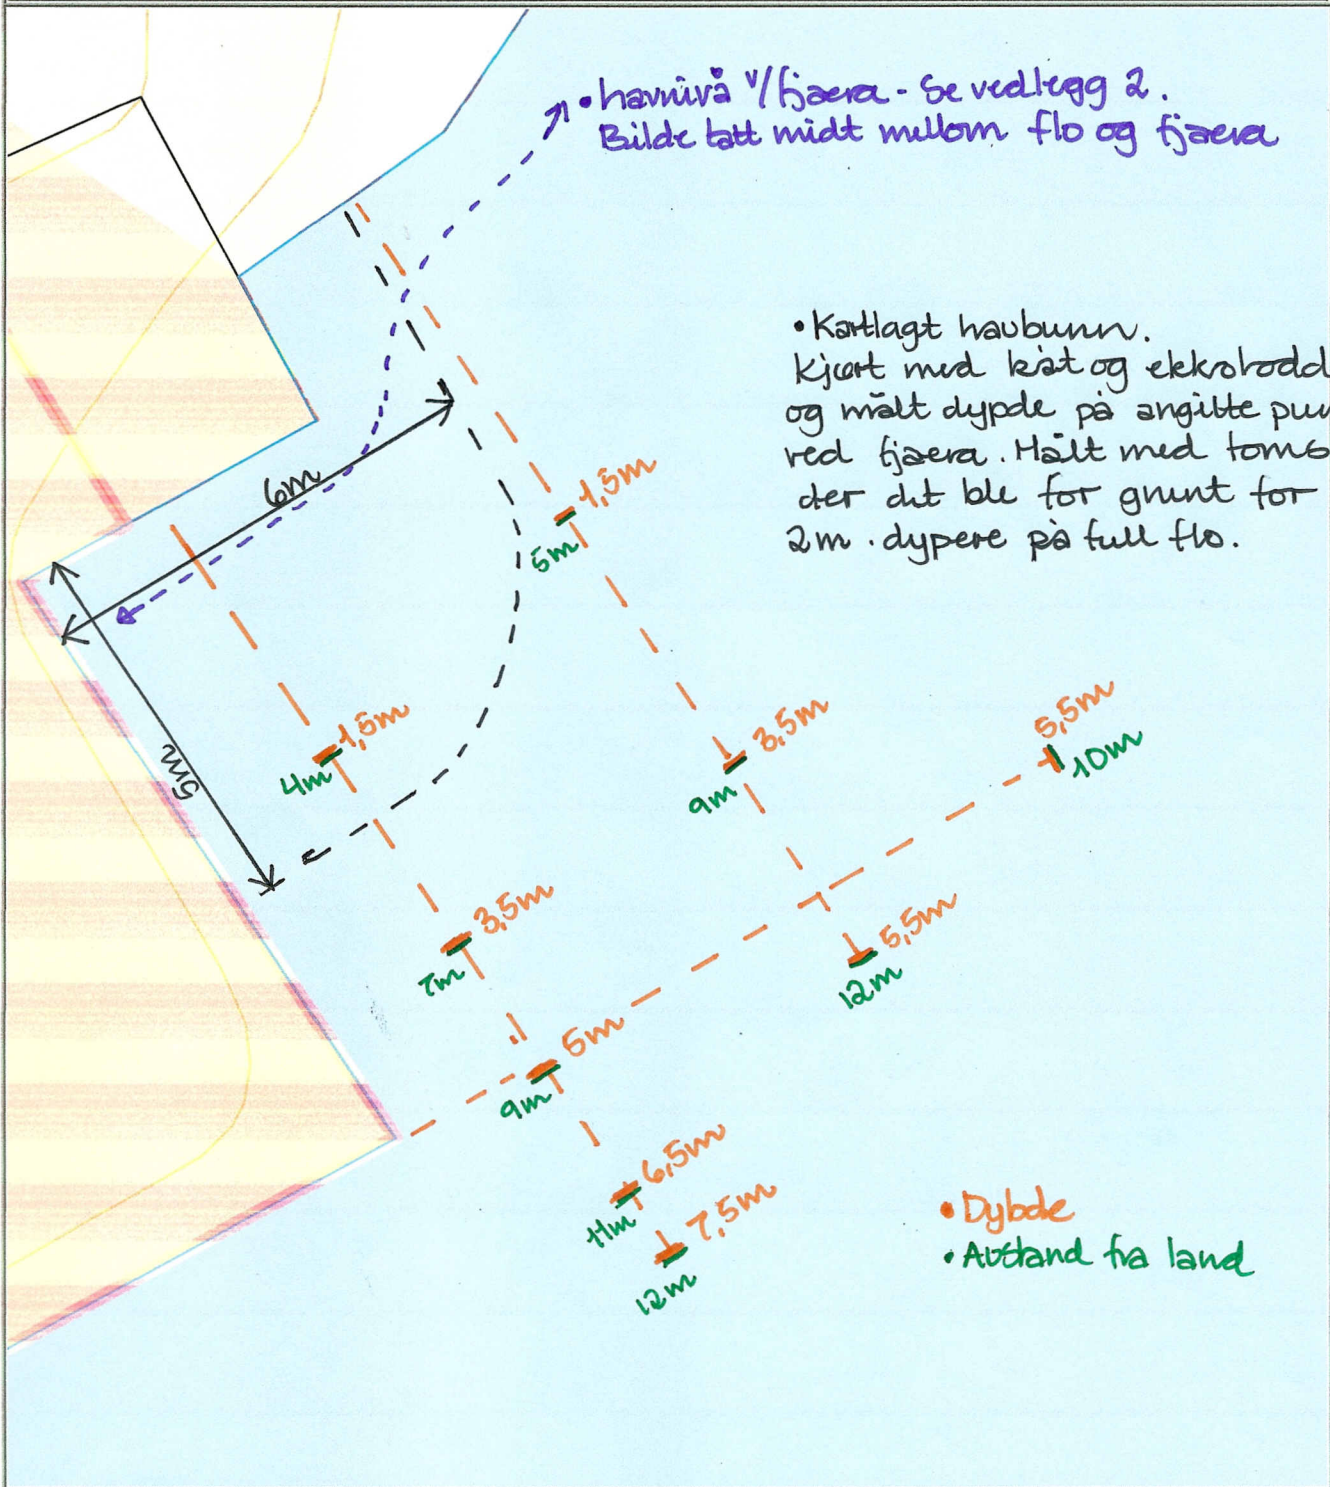 • havnivå v/fjæra - Se vedlegg 2.
Bilde tatt midt mellom flo og fjæra
• Kartlagt havbunn.
Kjørt med båt og ekkolodd
og målt dypde på angitte pun
ved fjæra. Målt med toms
der det ble for grunt for
2m. dypere på full flo.
6m
1,5m
5m
5m
1,5m
4m
3,5m
9m
5,5m
10m
3,5m
7m
5,5m
12m
5m
9m
6,5m
11m
7,5m
12m
• Dybde
• Avstand fra land